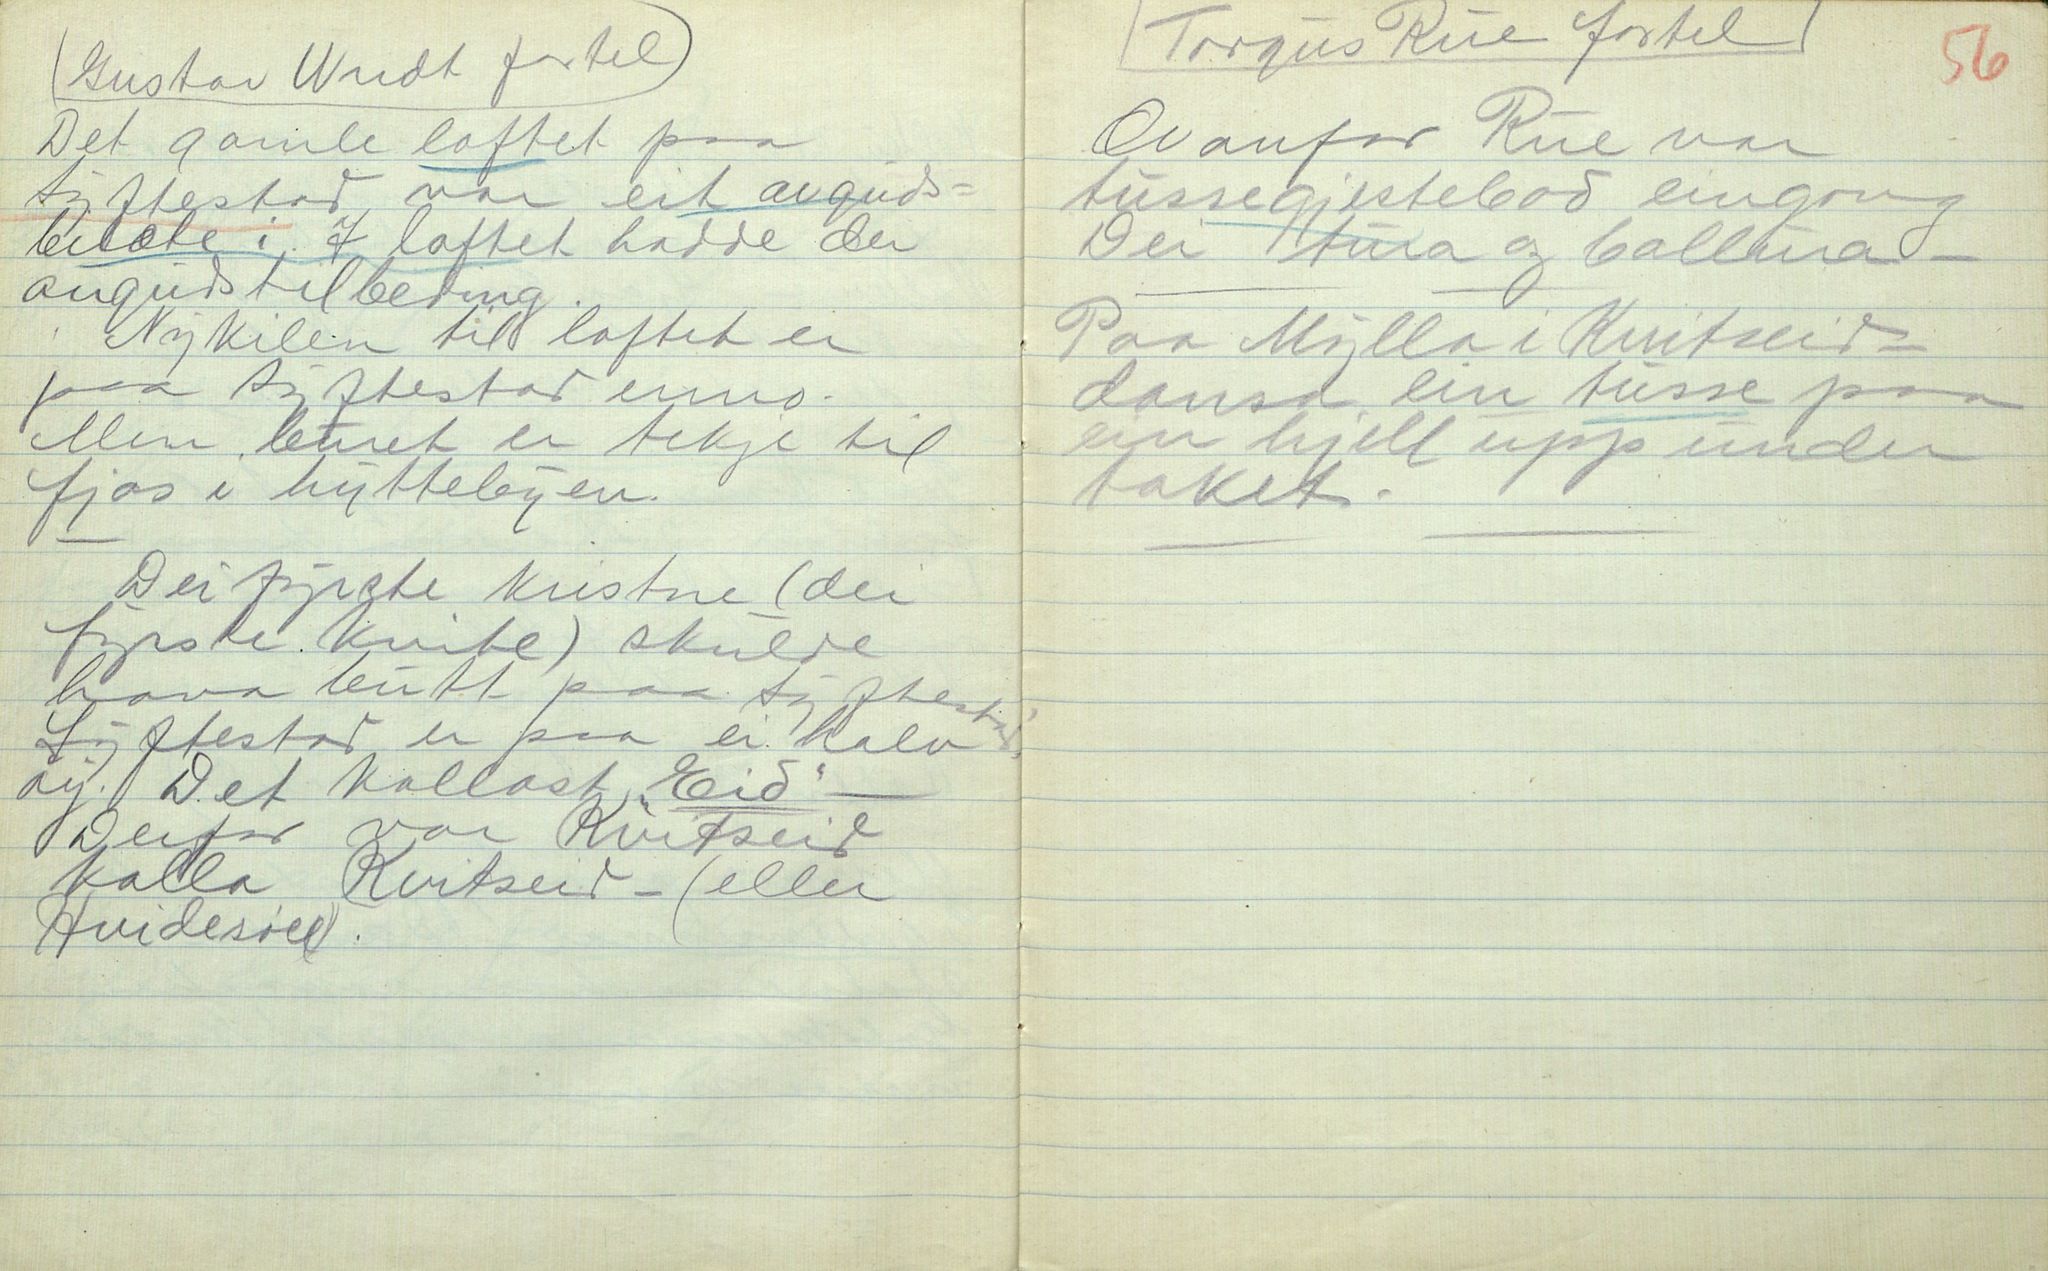 (Gustav Wredt fortel)
Det gamle loftet paa
Lyftestad var eit avguds-
bilæte i. I loftet hadde dei
avgudstilbeding.
Nykilen til loftet er
paa Lyftestad enno.
Men buret er tekje til
fjos i hyttebyen.
Dei fyrste kristne (dei
fyrste kvite) skulde
hava butt paa Lyftestad.
Lyftestad er paa ei halv
øy. Det kallast "Eid" —
Derfor var Kvitseid
kalla Kvitseid - (eller
Hvideseid).
(Torgus Rue fortel)
56
Ovanfor Rue var
tussegjestebod eingong
Dei tura og ballura —
Paa Mylla i Kvitseid -
dansa ein tusse paa
ein hjell upp under
taket.